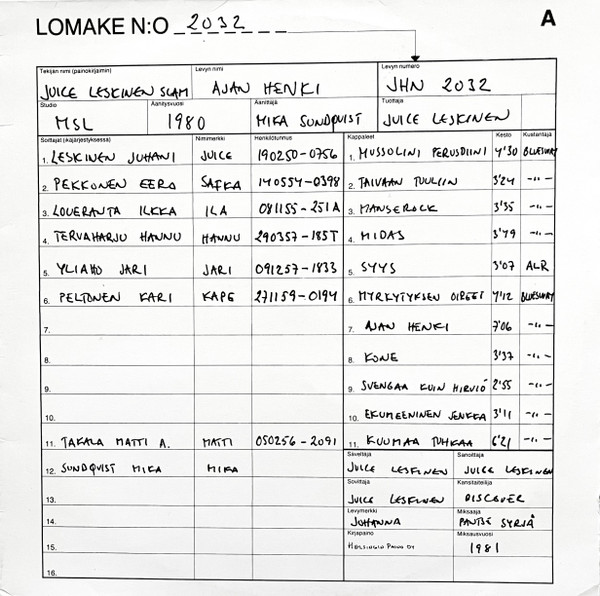 LOMAKE N:O 2032
A
Tekijän nimi (painokirjaimin) Levyn nimi Levyn numero
JUICE LESKINEN SLAM AJAN HENKI JHN 2032
Studio Äänitysvuosi Äänittäjä Tuottaja
MSL 1980 MIKA SUNDQVIST JUICE LESKINEN
Soittajat (ikäjärjestyksessä) Nimimerkki Henkilötunnus Kappaleet Kesto Kustantaja
1. LESKINEN JUHANI JUICE 190250-0756 1. MUSSOLINI PERUSDIINI 4'30 BLUESWAY
2. PEKKONEN EERO SAFKA 140554-0398 2. TAIVAAN TUULIIN 3'24 -"-
3. LOUERANTA ILKKA ILA 081155-251A 3. MANSEROCK 3'35 -"-
4. TERVAHARJU HANNU HANNU 290357-185T 4. MIDAS 3'49 -"-
5. YLIAHO JARI JARI 091257-1833 5. SYYS 3'07 ALR
6. PELTONEN KARI KAPE 271159-0194 6. MYRKYTYKSEN OIREET 4'12 BLUESWAY
7. 7. AJAN HENKI 7'06 -"-
8. 8. KONE 3'37 -"-
9. 9. SVENGAA KUIN HIRVIÖ 2'55 -"-
10. 10. EKUMEENINEN JENKKA 3'11 -"-
11. TAKALA MATTI A. MATTI 050256-2091 11. KUUMAA TUHKAA 6'21 -"-
12. SUNDQVIST MIKA MIKA
Säveltäjä Sanoittaja
JUICE LESKINEN JUICE LESKINEN
13.
Sovittaja Kansitaiteilija
JUICE LESKINEN DISCOVER
14.
Levymerkki Miksaaja
JOHANNA PANTSE SYRJÄ
15.
Kirjapaino Miksausvuosi
HELSINGIN PAINO OY 1981
16.